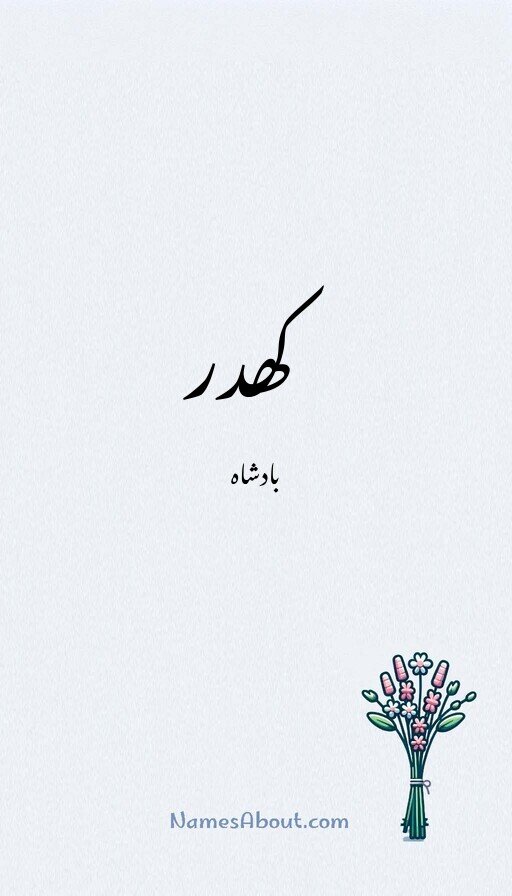 کھدر
بادشاہ
NamesAbout.com